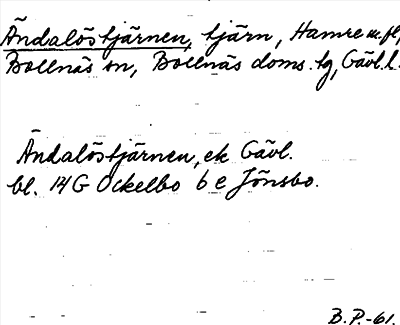 Ändalöstjärnen, tjärn, Hamre m.fl,
Bollnäs sn, Bollnäs doms. tg, Gävl. l.
Ändalöstjärnen, ek Gävl.
bl. 14 G Ockelbo 6 e Jönsbo.
B.P.-61.